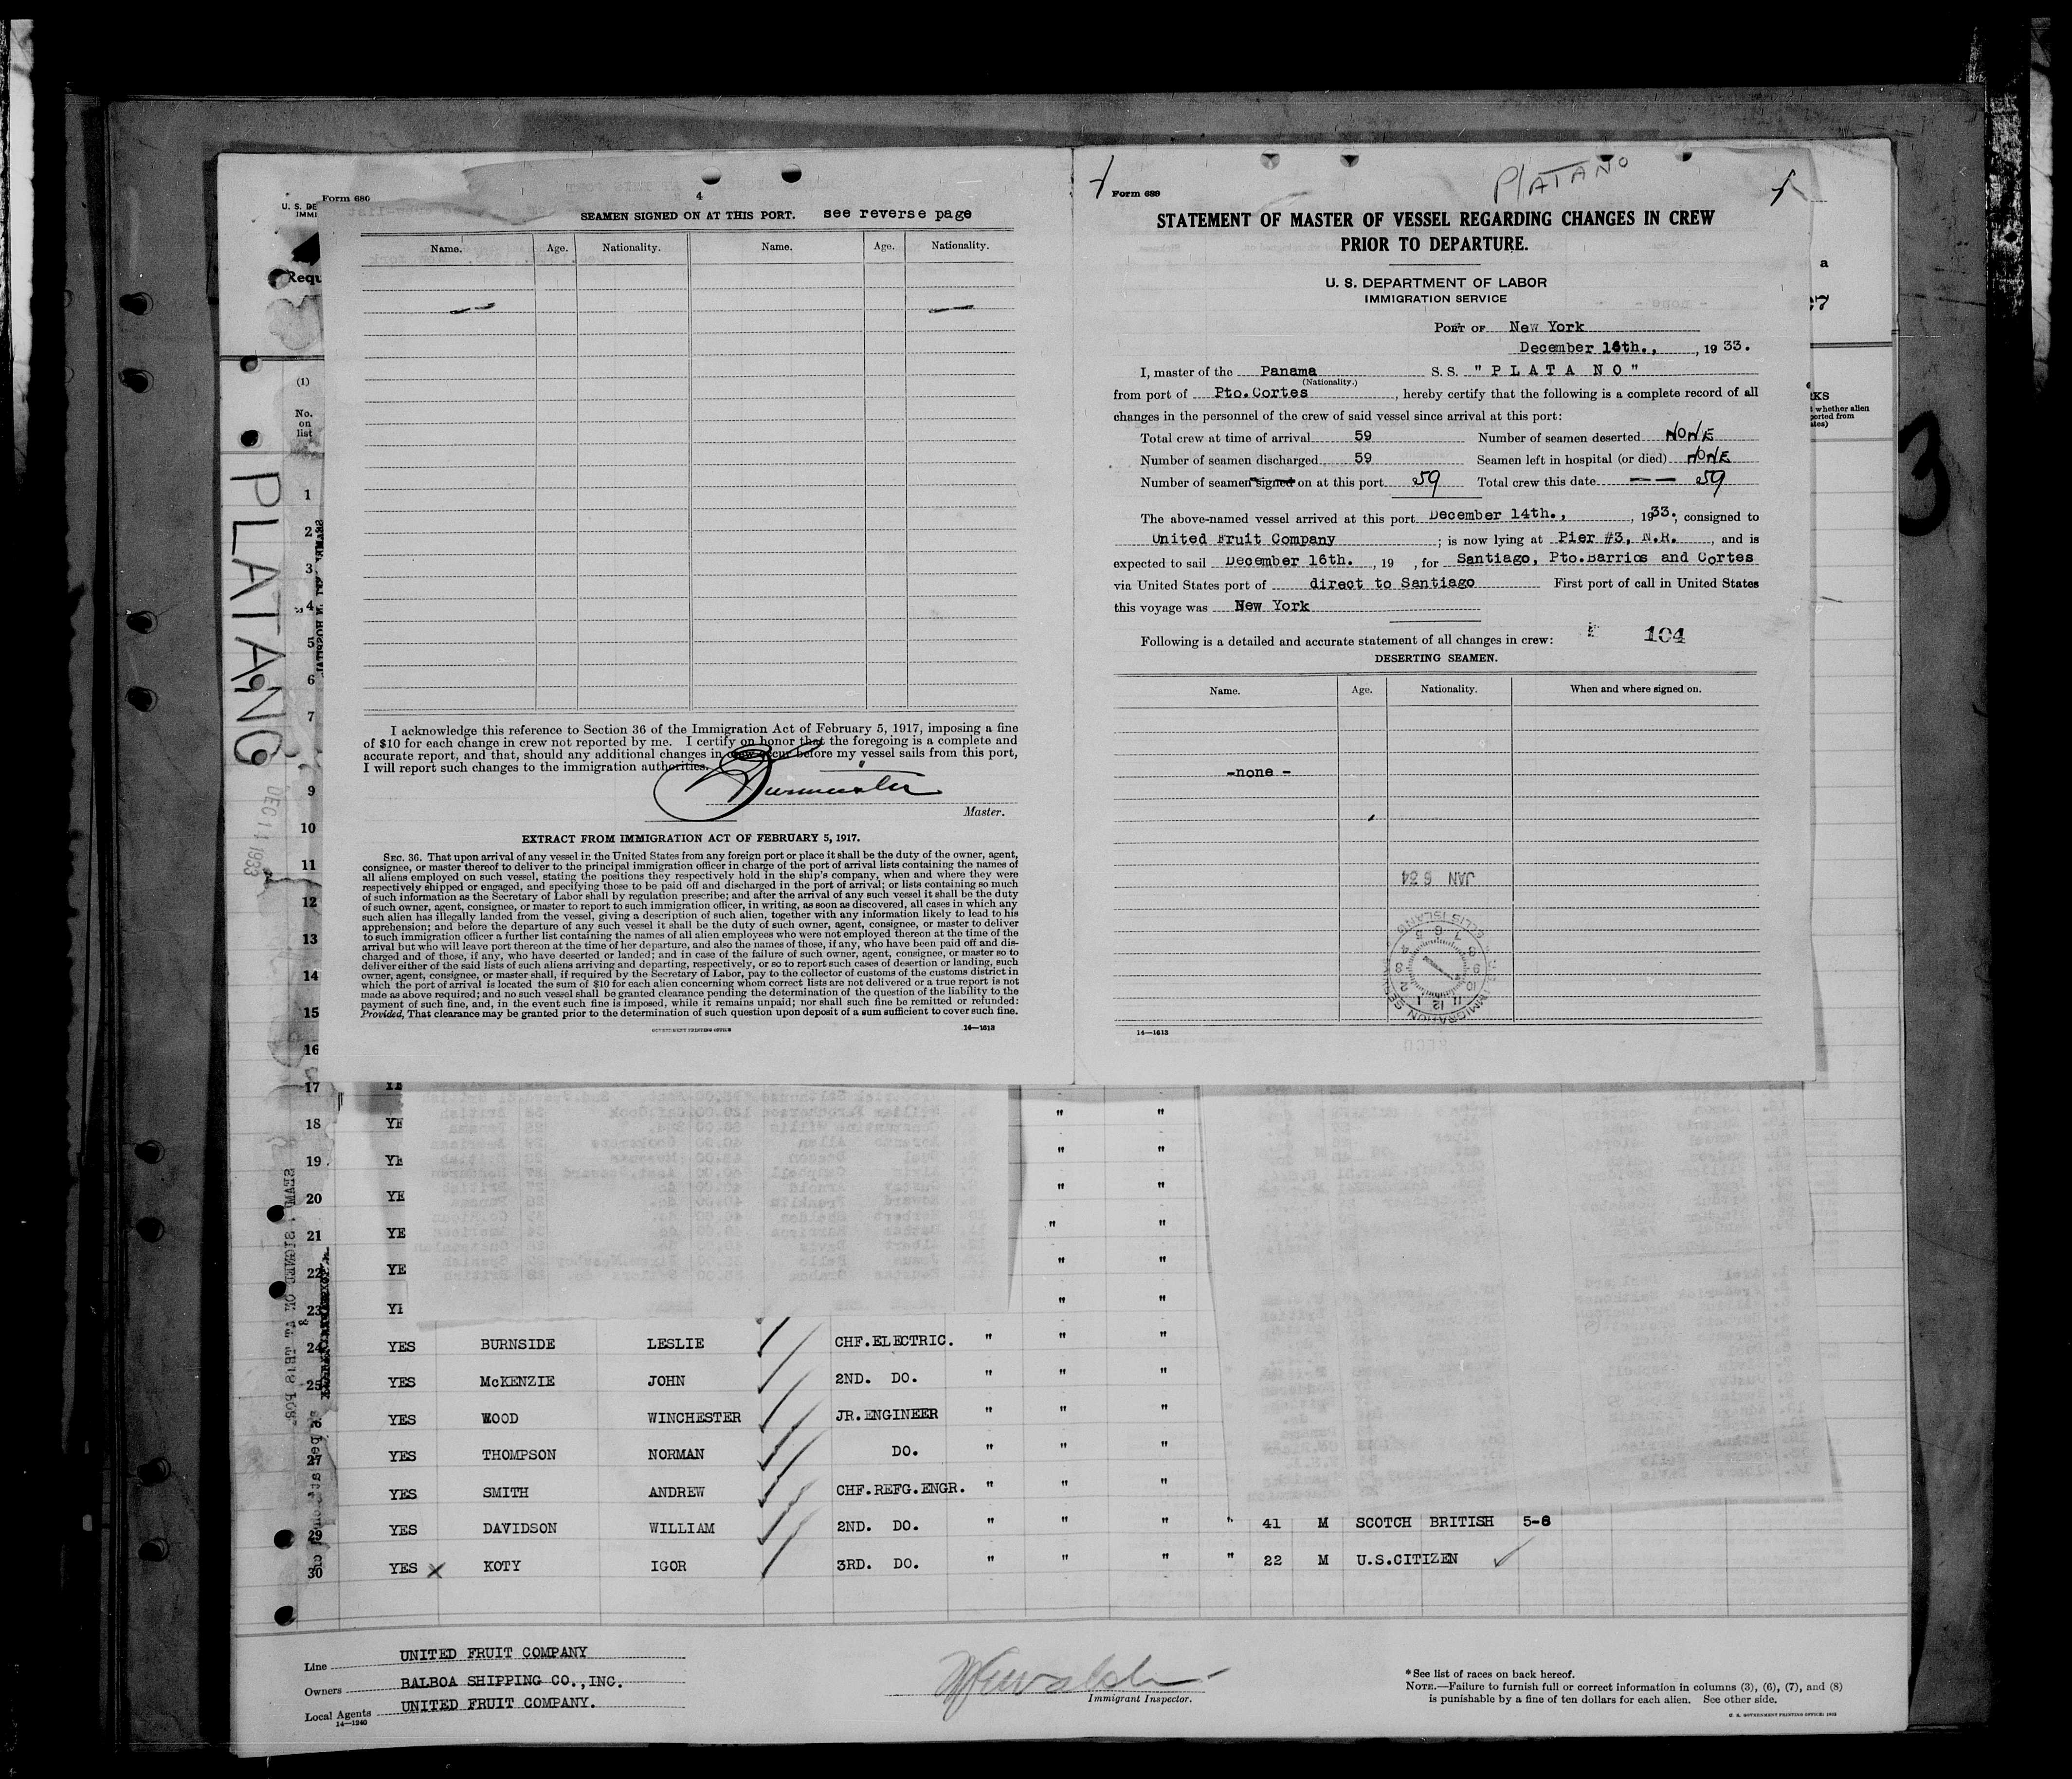 Form 680
4
SEAMEN SIGNED ON AT THIS PORT. see reverse page
Name. Age. Nationality. Name. Age. Nationality.
I acknowledge this reference to Section 36 of the Immigration Act of February 5, 1917, imposing a fine
of $10 for each change in crew not reported by me. I certify on honor that the foregoing is a complete and
accurate report, and that, should any additional changes in crew occur before my vessel sails from this port,
I will report such changes to the immigration authorities.
Master.
EXTRACT FROM IMMIGRATION ACT OF FEBRUARY 5, 1917.
SEC. 36. That upon arrival of any vessel in the United States from any foreign port or place it shall be the duty of the owner, agent,
consignee, or master thereof to deliver to the principal immigration officer in charge of the port of arrival lists containing the names of
all aliens employed on such vessel, stating the positions they respectively hold in the ship's company, when and where they were
respectively shipped or engaged, and specifying those to be paid off and discharged in the port of arrival; or lists containing so much
of such information as the Secretary of Labor shall by regulation prescribe; and after the arrival of any such vessel it shall be the duty
of such owner, agent, consignee, or master to report to such immigration officer, in writing, as soon as discovered, all cases in which any
such alien has illegally landed from the vessel, giving a description of such alien, together with any information likely to lead to his
apprehension; and before the departure of any such vessel it shall be the duty of such owner, agent, consignee, or master to deliver
to such immigration officer a further list containing the names of all alien employees who were not employed thereon at the time of the
arrival but who will leave port thereon at the time of her departure, and also the names of those, if any, who have been paid off and dis-
charged and of those, if any, who have deserted or landed; and in case of the failure of such owner, agent, consignee, or master so to
deliver either of the said lists of such aliens arriving and departing, respectively, or so to report such cases of desertion or landing, such
owner, agent, consignee, or master shall, if required by the Secretary of Labor, pay to the collector of customs of the customs district in
which the port of arrival is located the sum of $10 for each alien concerning whom correct lists are not delivered or a true report is not
made as above required; and no such vessel shall be granted clearance pending the determination of the question of the liability to the
payment of such fine, and, in the event such fine is imposed, while it remains unpaid; nor shall such fine be remitted or refunded:
Provided, That clearance may be granted prior to the determination of such question upon deposit of a sum sufficient to cover such fine.
GOVERNMENT PRINTING OFFICE 14—1613
PLATANO
Form 689
STATEMENT OF MASTER OF VESSEL REGARDING CHANGES IN CREW
PRIOR TO DEPARTURE.
U. S. DEPARTMENT OF LABOR
IMMIGRATION SERVICE
PORT OF New York
December 16th., , 1933.
I, master of the Panama S. S. "PLATANO"
(Nationality.)
from port of Pto.Cortes , hereby certify that the following is a complete record of all
changes in the personnel of the crew of said vessel since arrival at this port:
Total crew at time of arrival 59 Number of seamen deserted NONE
Number of seamen discharged 59 Seamen left in hospital (or died) NONE
Number of seamen signed on at this port 59 Total crew this date — — 59
The above-named vessel arrived at this port December 14th., , 1933., consigned to
United Fruit Company ; is now lying at Pier #3, N.R. , and is
expected to sail December 16th. , 19 , for Santiago, Pto.Barrios and Cortes
via United States port of direct to Santiago First port of call in United States
this voyage was New York
Following is a detailed and accurate statement of all changes in crew: 104
DESERTING SEAMEN.
Name. Age. Nationality. When and where signed on.
-none -
JAN 6 34
ELLIS ISLAND
14—1613
U. S. DE
IMMI
Requ
(1)
No.
on
list
PLATANO
DEC 14 1933
1
2
3
4
5
6
7
9
10
11
12
13
14
15
16
17
18 YE
19 YE
20 YE
21 YE
22 YE
23 YE
24 YES BURNSIDE LESLIE CHF.ELECTRIC. " " "
25 YES McKENZIE JOHN 2ND. DO. " " "
YES WOOD WINCHESTER JR.ENGINEER " " "
27 YES THOMPSON NORMAN DO. " " "
YES SMITH ANDREW CHF.REFG.ENGR. " " "
29 YES DAVIDSON WILLIAM 2ND. DO. " " " " 41 M SCOTCH BRITISH 5-8
30 YES X KOTY IGOR 3RD. DO. " " " " 22 M U.S.CITIZEN
3
Line UNITED FRUIT COMPANY
Owners BALBOA SHIPPING CO.,INC.
Local Agents UNITED FRUIT COMPANY.
14—1240
Immigrant Inspector.
*See list of races on back hereof.
NOTE.—Failure to furnish full or correct information in columns (3), (6), (7), and (8)
is punishable by a fine of ten dollars for each alien. See other side.